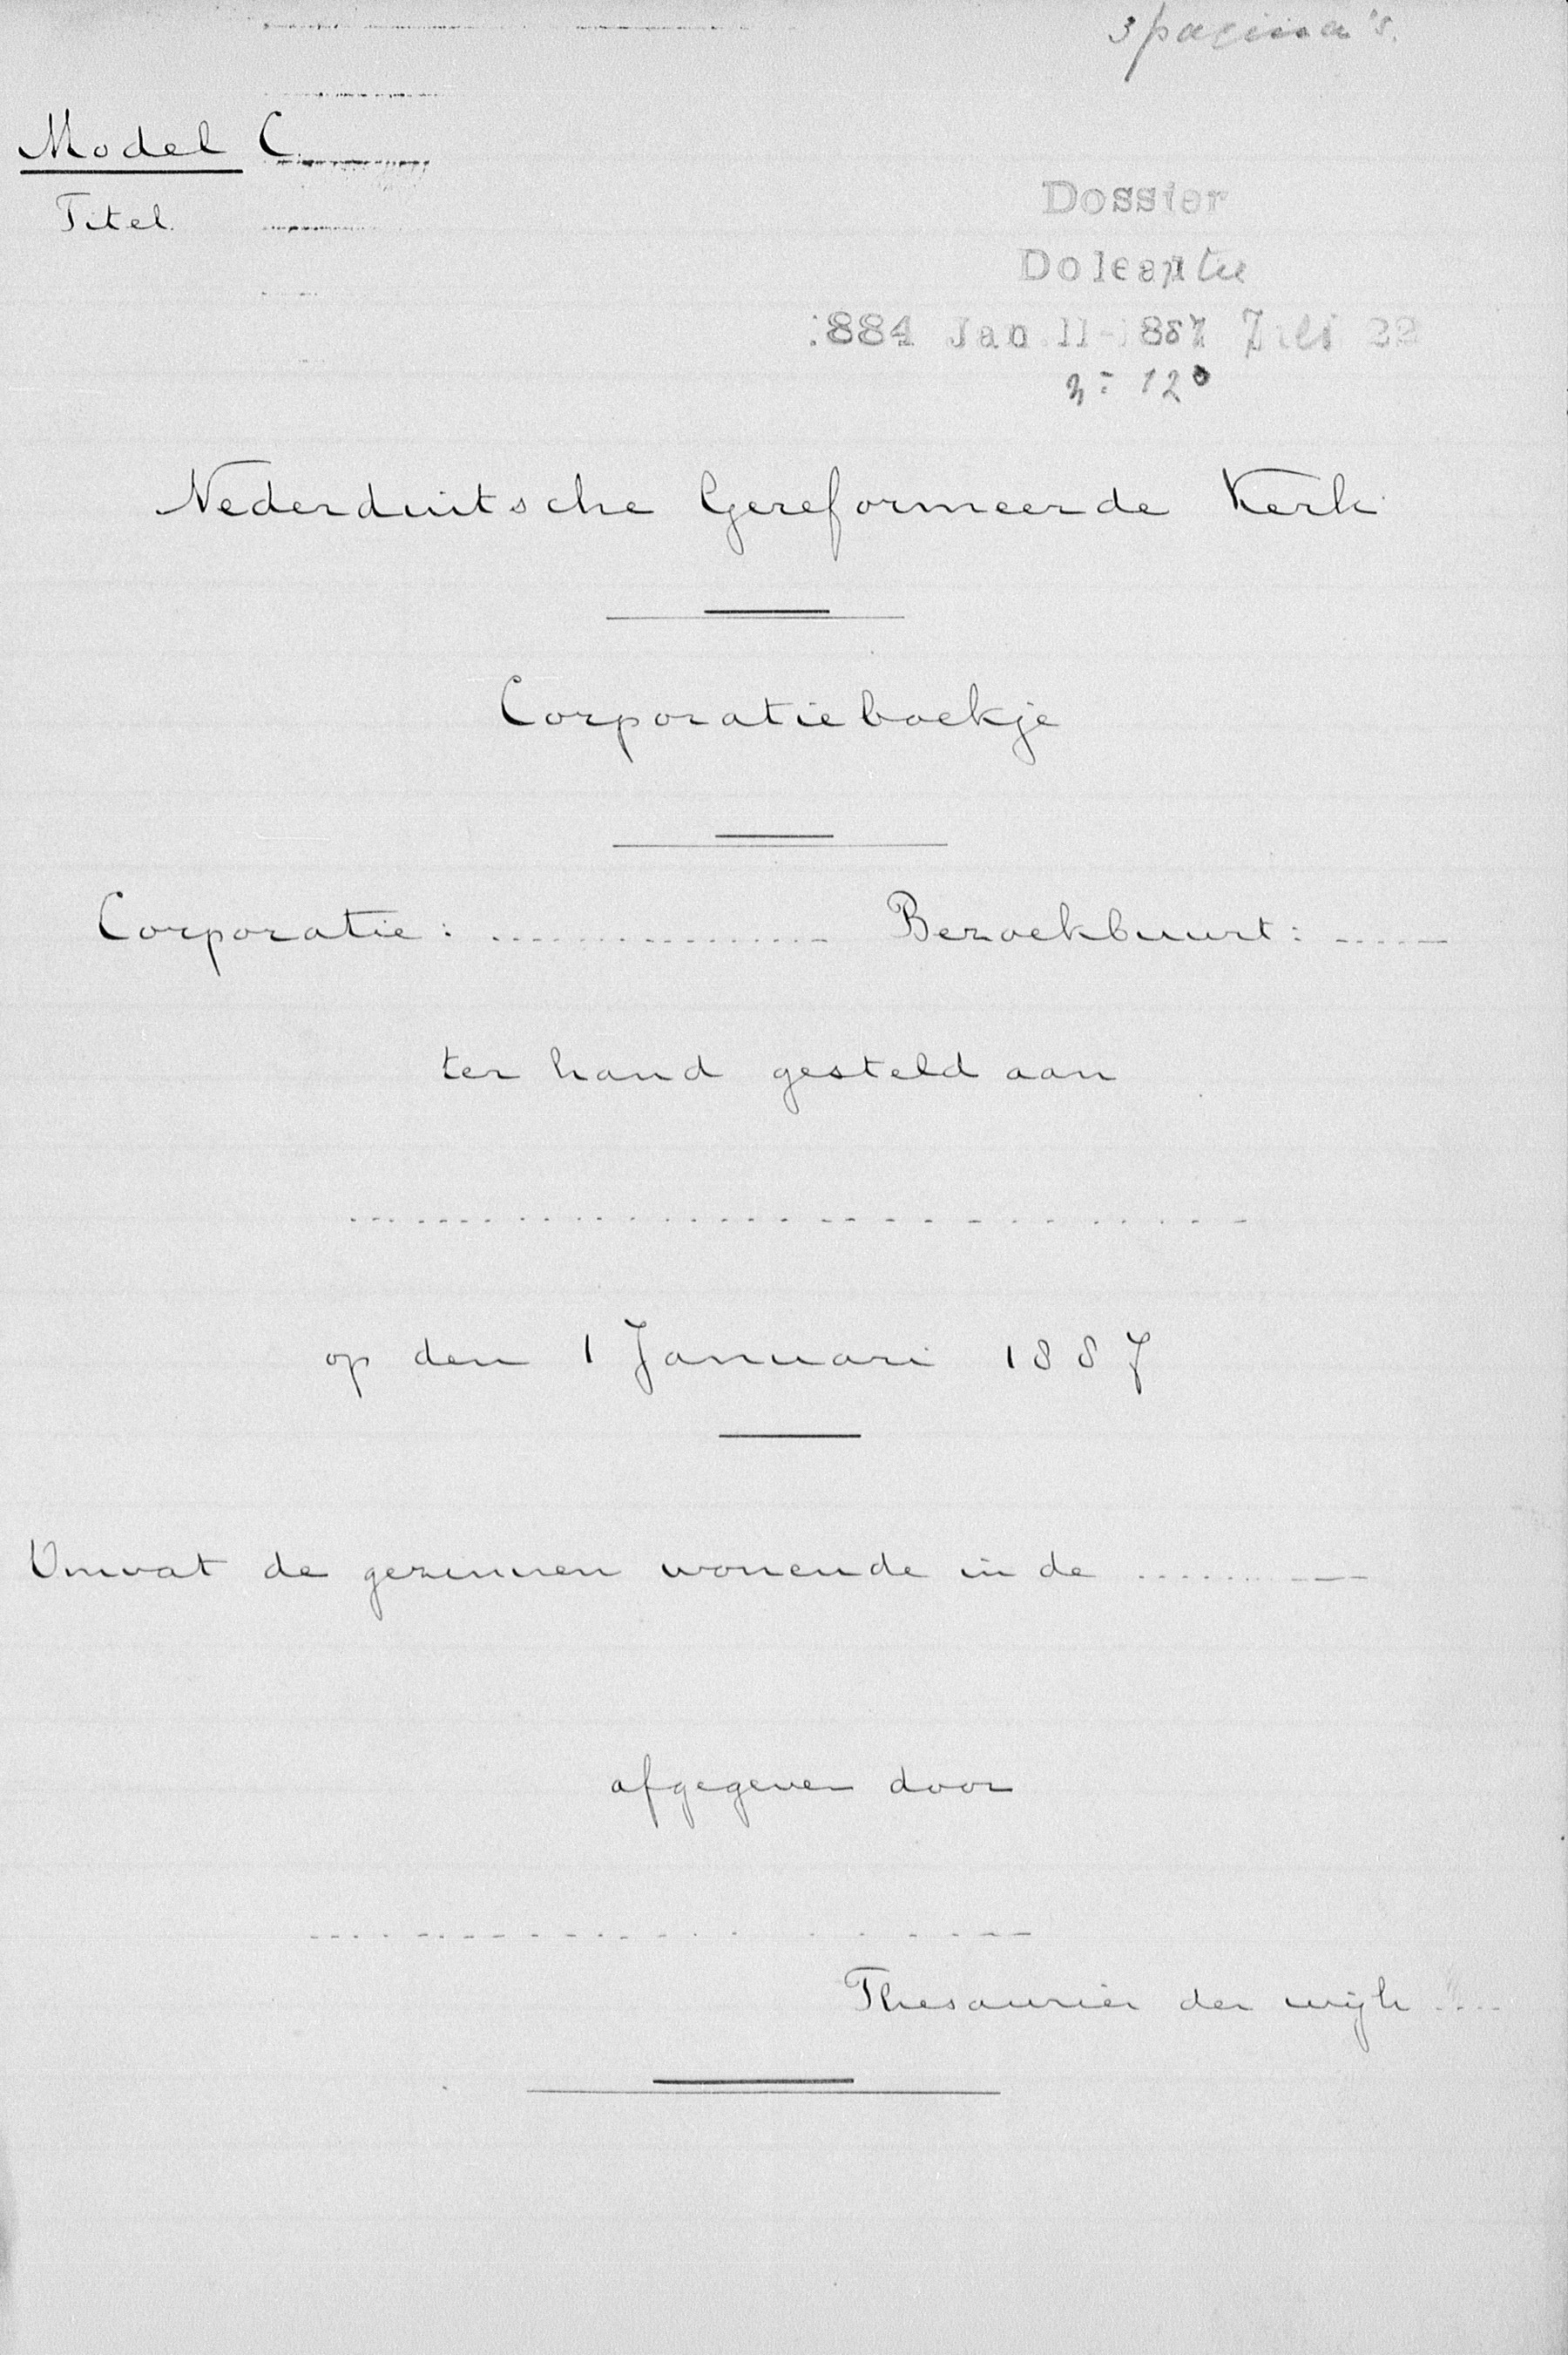 3 pagina's.
Model C.
Titel.
Dossier
Doleantie
1884 Jan 11-1887 Juli 22
n: 120
Nederduitsche Gereformeerde Kerk
Corporatieboekje
Corporatie: ................ Bezoekbuurt: ......
ter hand gesteld aan
................................
op den 1 Januari 1887
Omvat de gezinnen wonende in de ..........
afgegeven door
................................
Thesaurier der wijk ....